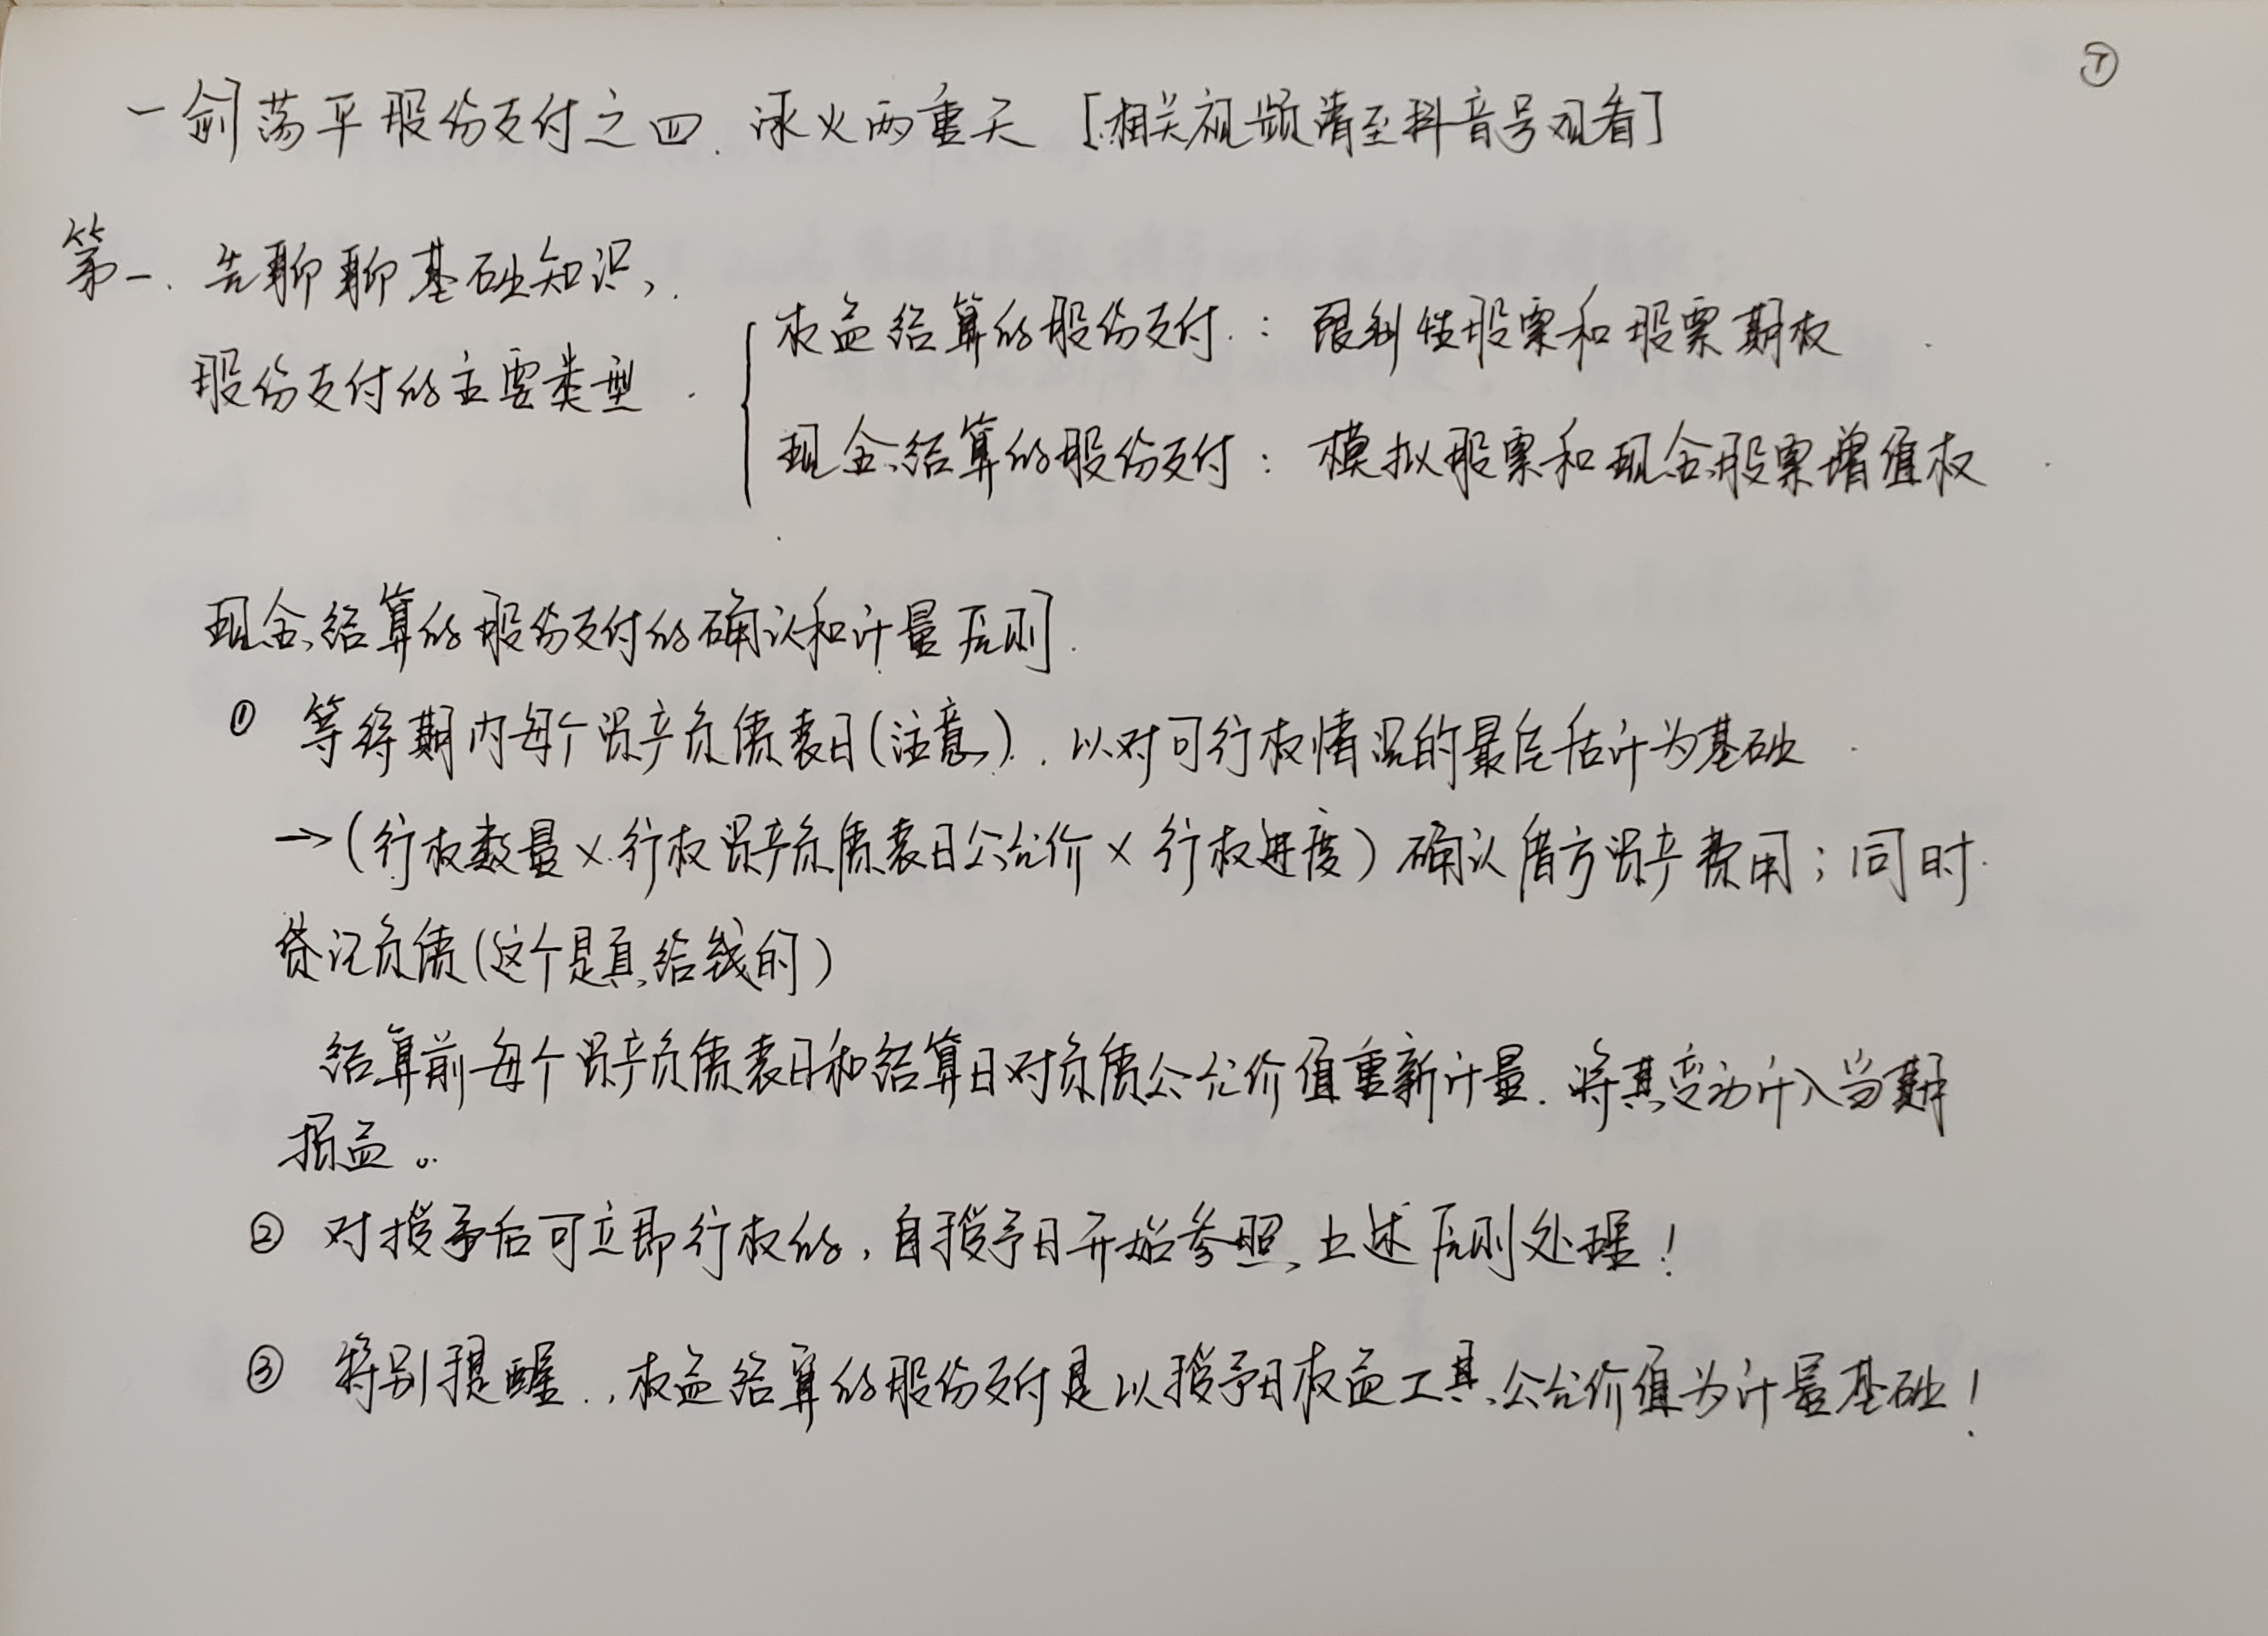 ⑦
一剑荡平股份支付之四.冰火两重天[相关视频请至抖音号观看]
第一.先聊聊基础知识,
股份支付的主要类型
权益结算的股份支付:限制性股票和股票期权
现金结算的股份支付:模拟股票和现金股票增值权
现金结算的股份支付的确认和计量原则.
① 等待期内每个资产负债表日(注意).以对可行权情况的最佳估计为基础
→(行权数量×行权资产负债表日公允价×行权进度)确认借方资产费用;同时
贷记负债(这个是真给钱的)
结算前每个资产负债表日和结算日对负债公允价值重新计量.将其变动计入当期
损益。
② 对授予后可立即行权的,自授予日开始参照上述原则处理!
③ 特别提醒.,权益结算的股份支付是以授予日权益工具公允价值为计量基础!